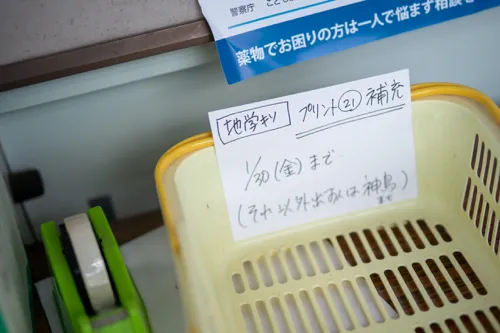 警察庁
薬物でお困りの方は一人で悩まず相談を
地学キソ プリント㉑ 補充
1/30(金)まで
(それ以外出あ人は神島まで)